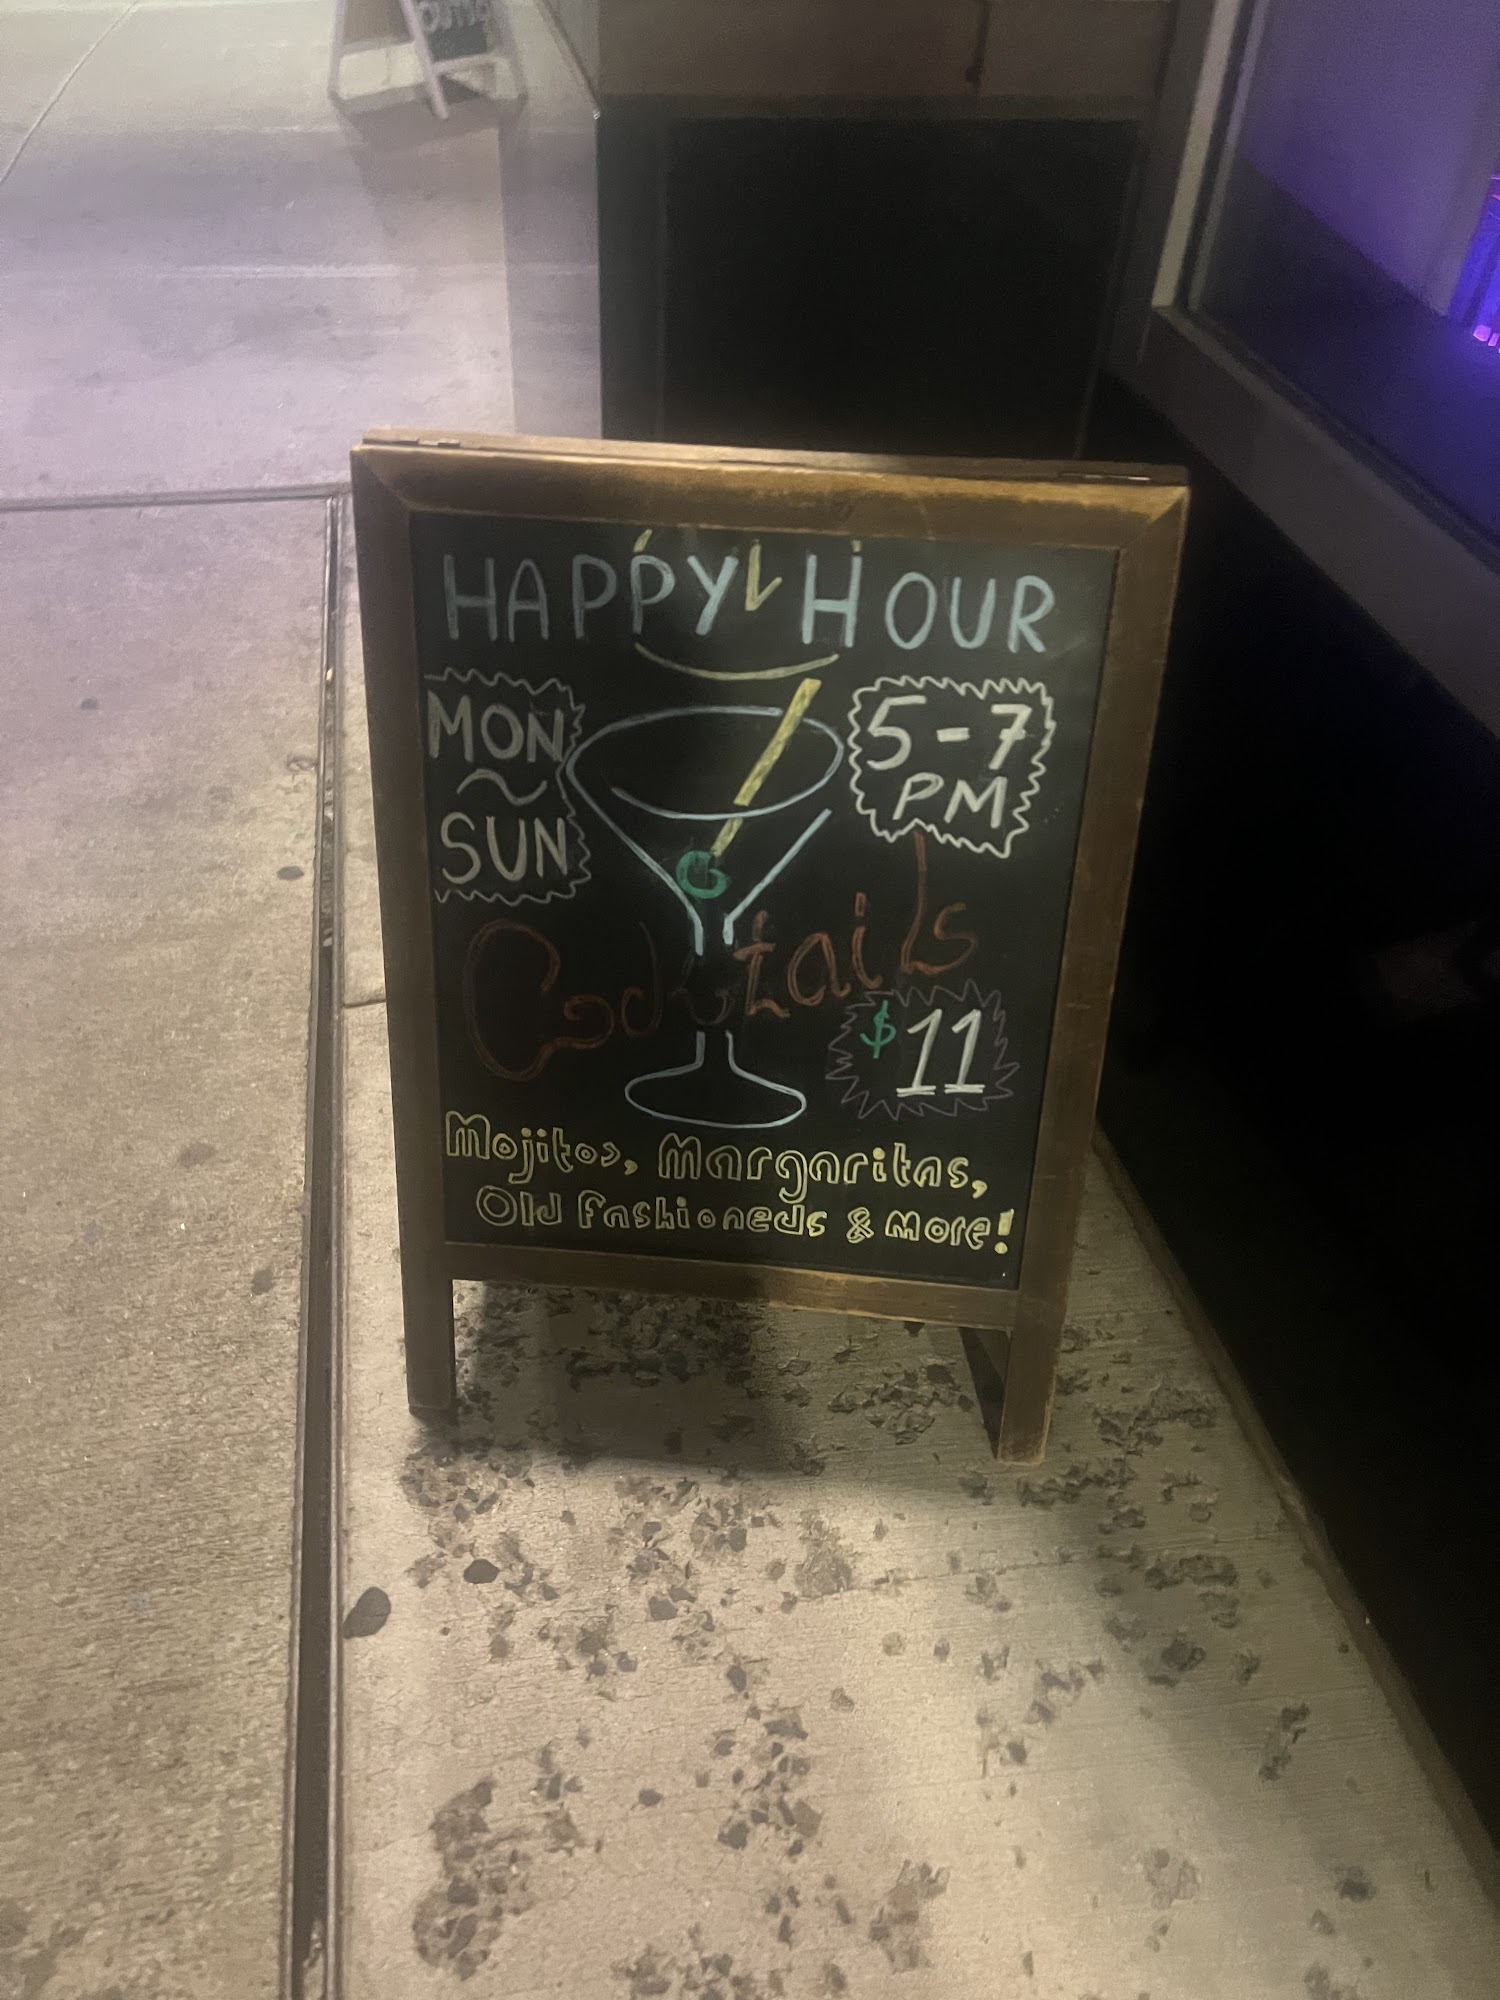 HAPPY HOUR
MON
~
SUN
5-7
PM
Cocktails
$11
Mojitos, Margaritas,
Old Fashioneds & More!